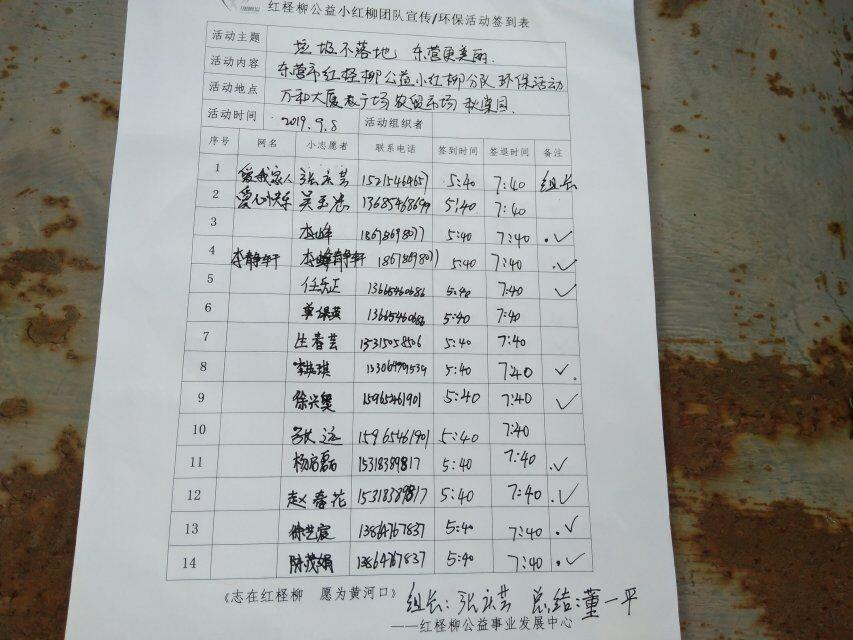 红柽柳公益小红柳团队宣传/环保活动签到表
活动主题 垃圾不落地, 东营更美丽.
活动内容 东营市红柽柳公益小红柳分队环保活动
活动地点 万和大厦 广场 农贸市场
活动时间 2019.9.8 活动组织者
序号 网名 小志愿者 联系电话 签到时间 签退时间 备注
1 爱我家人 张云芸 15215464657 5:40 7:40 组长
2 13685468699 5:40 7:40
3 李峰 18678698077 5:40 7:40 ✓
4 李静轩 18678698077 5:40 7:40 ✓
5 任兵正 13665460686 5:40 7:40 ✓
6 单保英 13665460686 5:40 7:40
7 生春芸 15315058506 5:40 7:40
8 5:40 7:40 ✓
9 徐兴奥 15965461901 5:40 7:40 ✓
10 张远 15965461901 5:40 7:40
11 杨启磊 15318389817 5:40 7:40 ✓
12 赵春花 15318389817 5:40 7:40 ✓
13 徐艺宸 13864767837 5:40 7:40 ✓
14 陈茂娟 13864767837 5:40 7:40 ✓
《志在红柽柳 愿为黄河口》 组长: 张云芸 总结: 董一平
——红柽柳公益事业发展中心